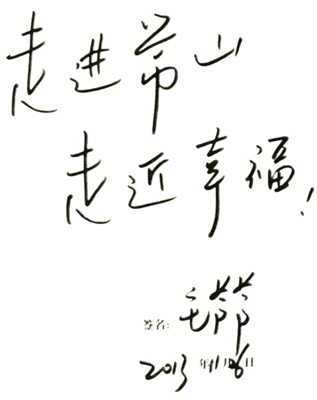 走进常山
走近幸福!
签名:
2013年1月06日